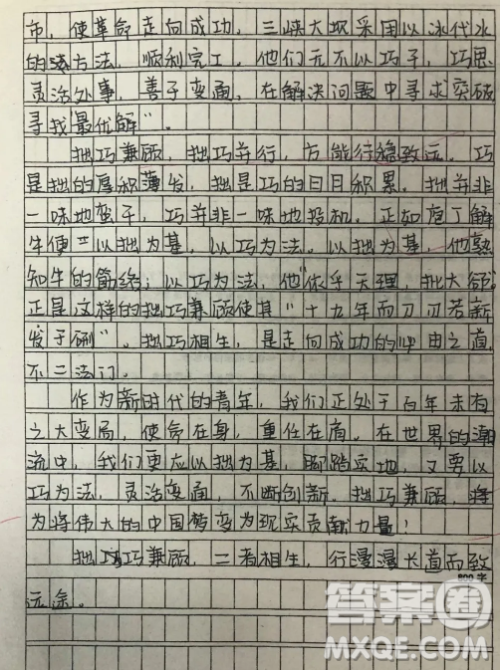 市，使革命走向成功，三峡大坝采用以冰代水
的方法，顺利完工。他们无不以巧干，巧思，
灵活处事，善于变通，在解决问题中寻求突破
寻找“最优解”。
拙巧兼顾，拙巧并行，方能行稳致远。巧
是拙的厚积薄发，拙是巧的日积累。拙并非
一味地蛮干，巧并非一味地投机。正如庖丁解
牛便以拙为基，以巧为法。以拙为基，他熟
知牛的筋络；以巧为法，他“依乎天理，批大郤”。
正是这样的拙巧兼顾使其“十九年而刀刃若新
发于硎”。拙巧相生，是走向成功的必由之道，
不二法门。
作为新时代的青年，我们正处于百年未有
之大变局，使命在身，重任在肩。在世界的潮
流中，我们更应以拙为基，脚踏实地，又要以
巧为法，灵活变通，不断创新。拙巧兼顾，将
为将伟大的中国梦变为现实贡献力量！
拙巧兼顾，二者相生，行漫漫长道而致
800字
远途。
答案圈
MXQE.COM